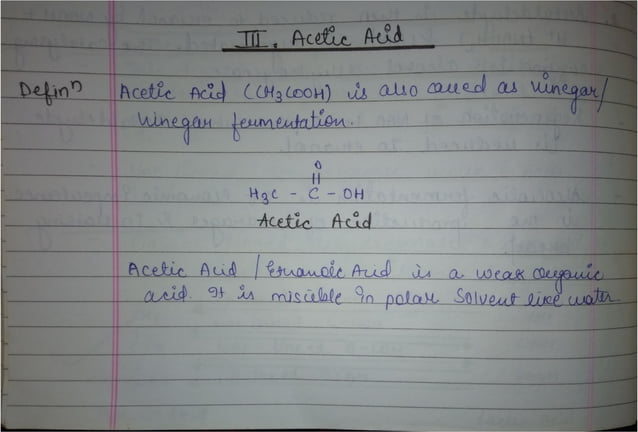 III. Acetic Acid
Definⁿ Acetic Acid (CH3COOH) is also called as vinegar/
vinegar fermentation.
O
||
H3C - C - OH
Acetic Acid
Acetic Acid / Ethanoic Acid is a weak organic
acid. It is miscible in polar solvent like water